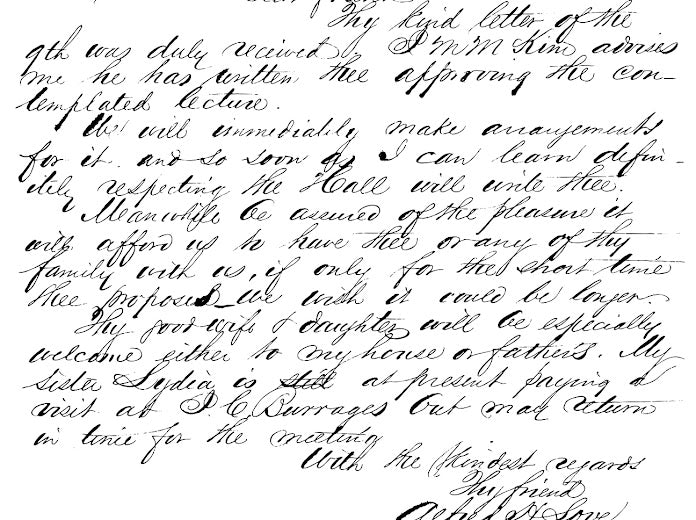 Thy kind letter of the
9th was duly received. J M M Kim advises
me he has written thee approving the con-
templated lecture.
We will immediately make arrangements
for it. and so soon as I can learn defin-
itely respecting the Hall will write thee.
Meanwhile be assured of the pleasure it
will afford us to have thee or any of thy
family with us, if only for the short time
thee proposes_we wish it could be longer.
Thy good wife & daughter will be especially
welcome either to my house or father's. My
sister Lydia is still at present paying a
visit at J. C. Burrages but may return
in time for the meeting
With the kindest regards
Thy friend
Alfred H Love